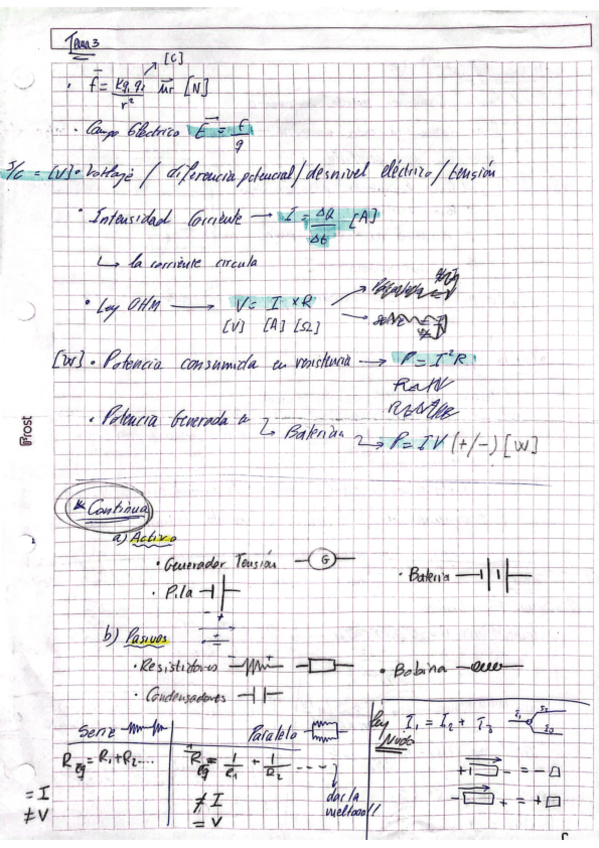 Tema 3
[C]
· f = Kq₁q₂/r² ur [N]
· Campo Eléctrico E = f/q
J/C = [V] · Voltaje / diferencia potencial / desnivel eléctrico / tensión
· Intensidad Corriente → I = ΔQ/Δt [A]
↳ la corriente circula
· Ley OHM → V = I × R
[V] [A] [Ω]
[W] · Potencia consumida en resistencia → P = I²R
· Potencia Generada
↳ Baterías ↳ P = IV (+/-) [W]
Prost
* Continua
a) Activo
· Generador Tensión G
· Batería
· Pila
- +
b) Pasivos
- +
· Resistidores - +
· Bobina
· Condensadores
Serie
Paralelo
Ley Nudo
I₁ = I₂ + I₃
I₁ I₂ I₃
Req = R₁ + R₂ ....
1/Req = 1/R₁ + 1/R₂ ----
dar la vuelta!!
= I
≠ V
≠ I
= V
+ - = - Δ
- + = + □